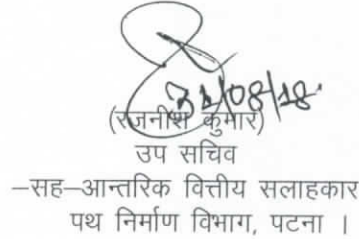 31/08/18
(रजनीश कुमार)
उप सचिव
–सह–आन्तरिक वित्तीय सलाहकार
पथ निर्माण विभाग, पटना ।